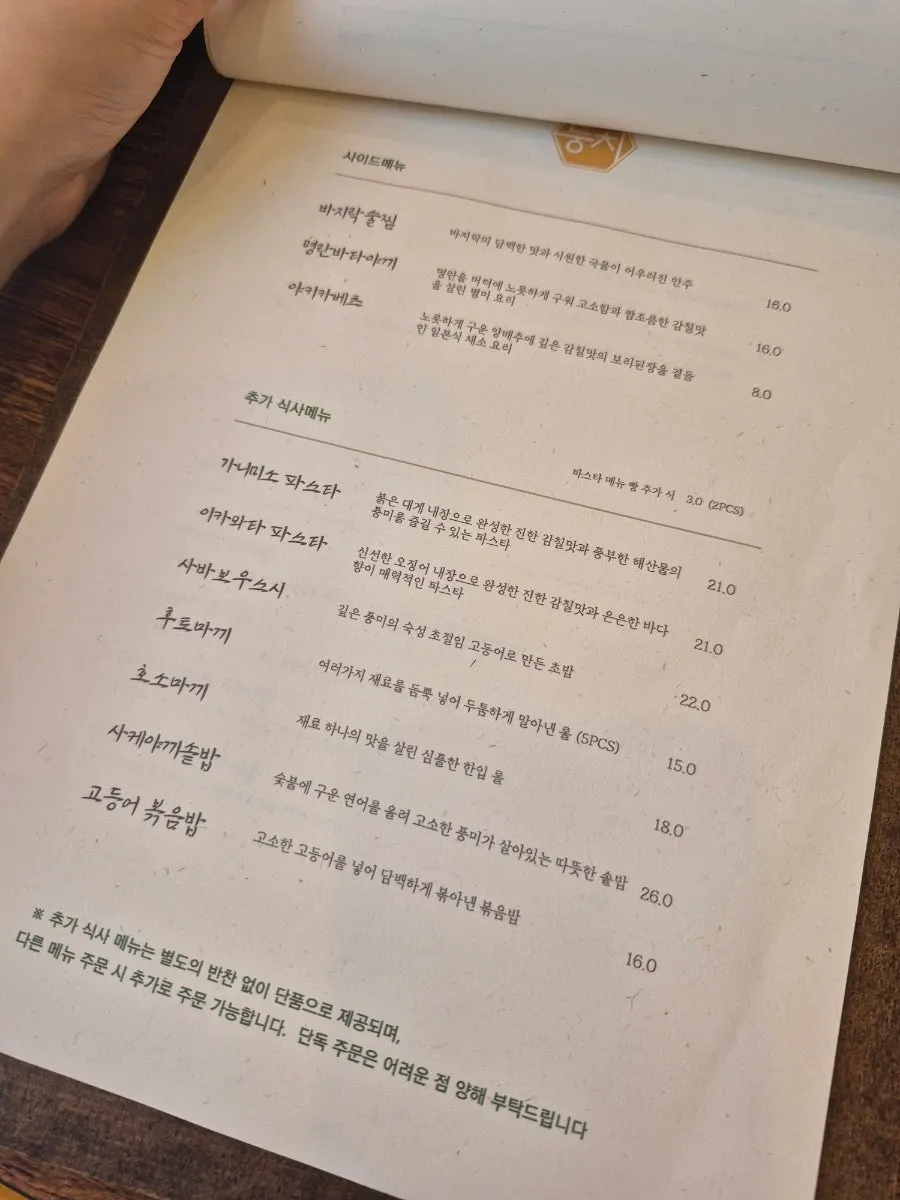 사이드메뉴
바지락술찜
바지락의 담백한 맛과 시원한 국물이 어우러진 안주
16.0
명란바타야끼
명란을 버터에 노릇하게 구워 고소함과 짭조름한 감칠맛
을 살린 별미 요리
16.0
야키캬베츠
노릇하게 구운 양배추에 깊은 감칠맛의 보리된장을 곁들
인 일본식 채소 요리
8.0
추가 식사메뉴
파스타 메뉴 빵 추가 시 3.0 (2PCS)
가니미소 파스타
붉은 대게 내장으로 완성한 진한 감칠맛과 풍부한 해산물의
풍미를 즐길 수 있는 파스타
21.0
이카와타 파스타
신선한 오징어 내장으로 완성한 진한 감칠맛과 은은한 바다
향이 매력적인 파스타
21.0
사바보우스시
깊은 풍미의 숙성 초절임 고등어로 만든 초밥
22.0
후토마끼
여러가지 재료를 듬뿍 넣어 두툼하게 말아낸 롤 (5PCS)
15.0
호소마끼
재료 하나의 맛을 살린 심플한 한입 롤
18.0
사케야끼솥밥
숯불에 구운 연어를 올려 고소한 풍미가 살아있는 따뜻한 솥밥
26.0
고등어 볶음밥
고소한 고등어를 넣어 담백하게 볶아낸 볶음밥
16.0
※ 추가 식사 메뉴는 별도의 반찬 없이 단품으로 제공되며,
다른 메뉴 주문 시 추가로 주문 가능합니다. 단독 주문은 어려운 점 양해 부탁드립니다